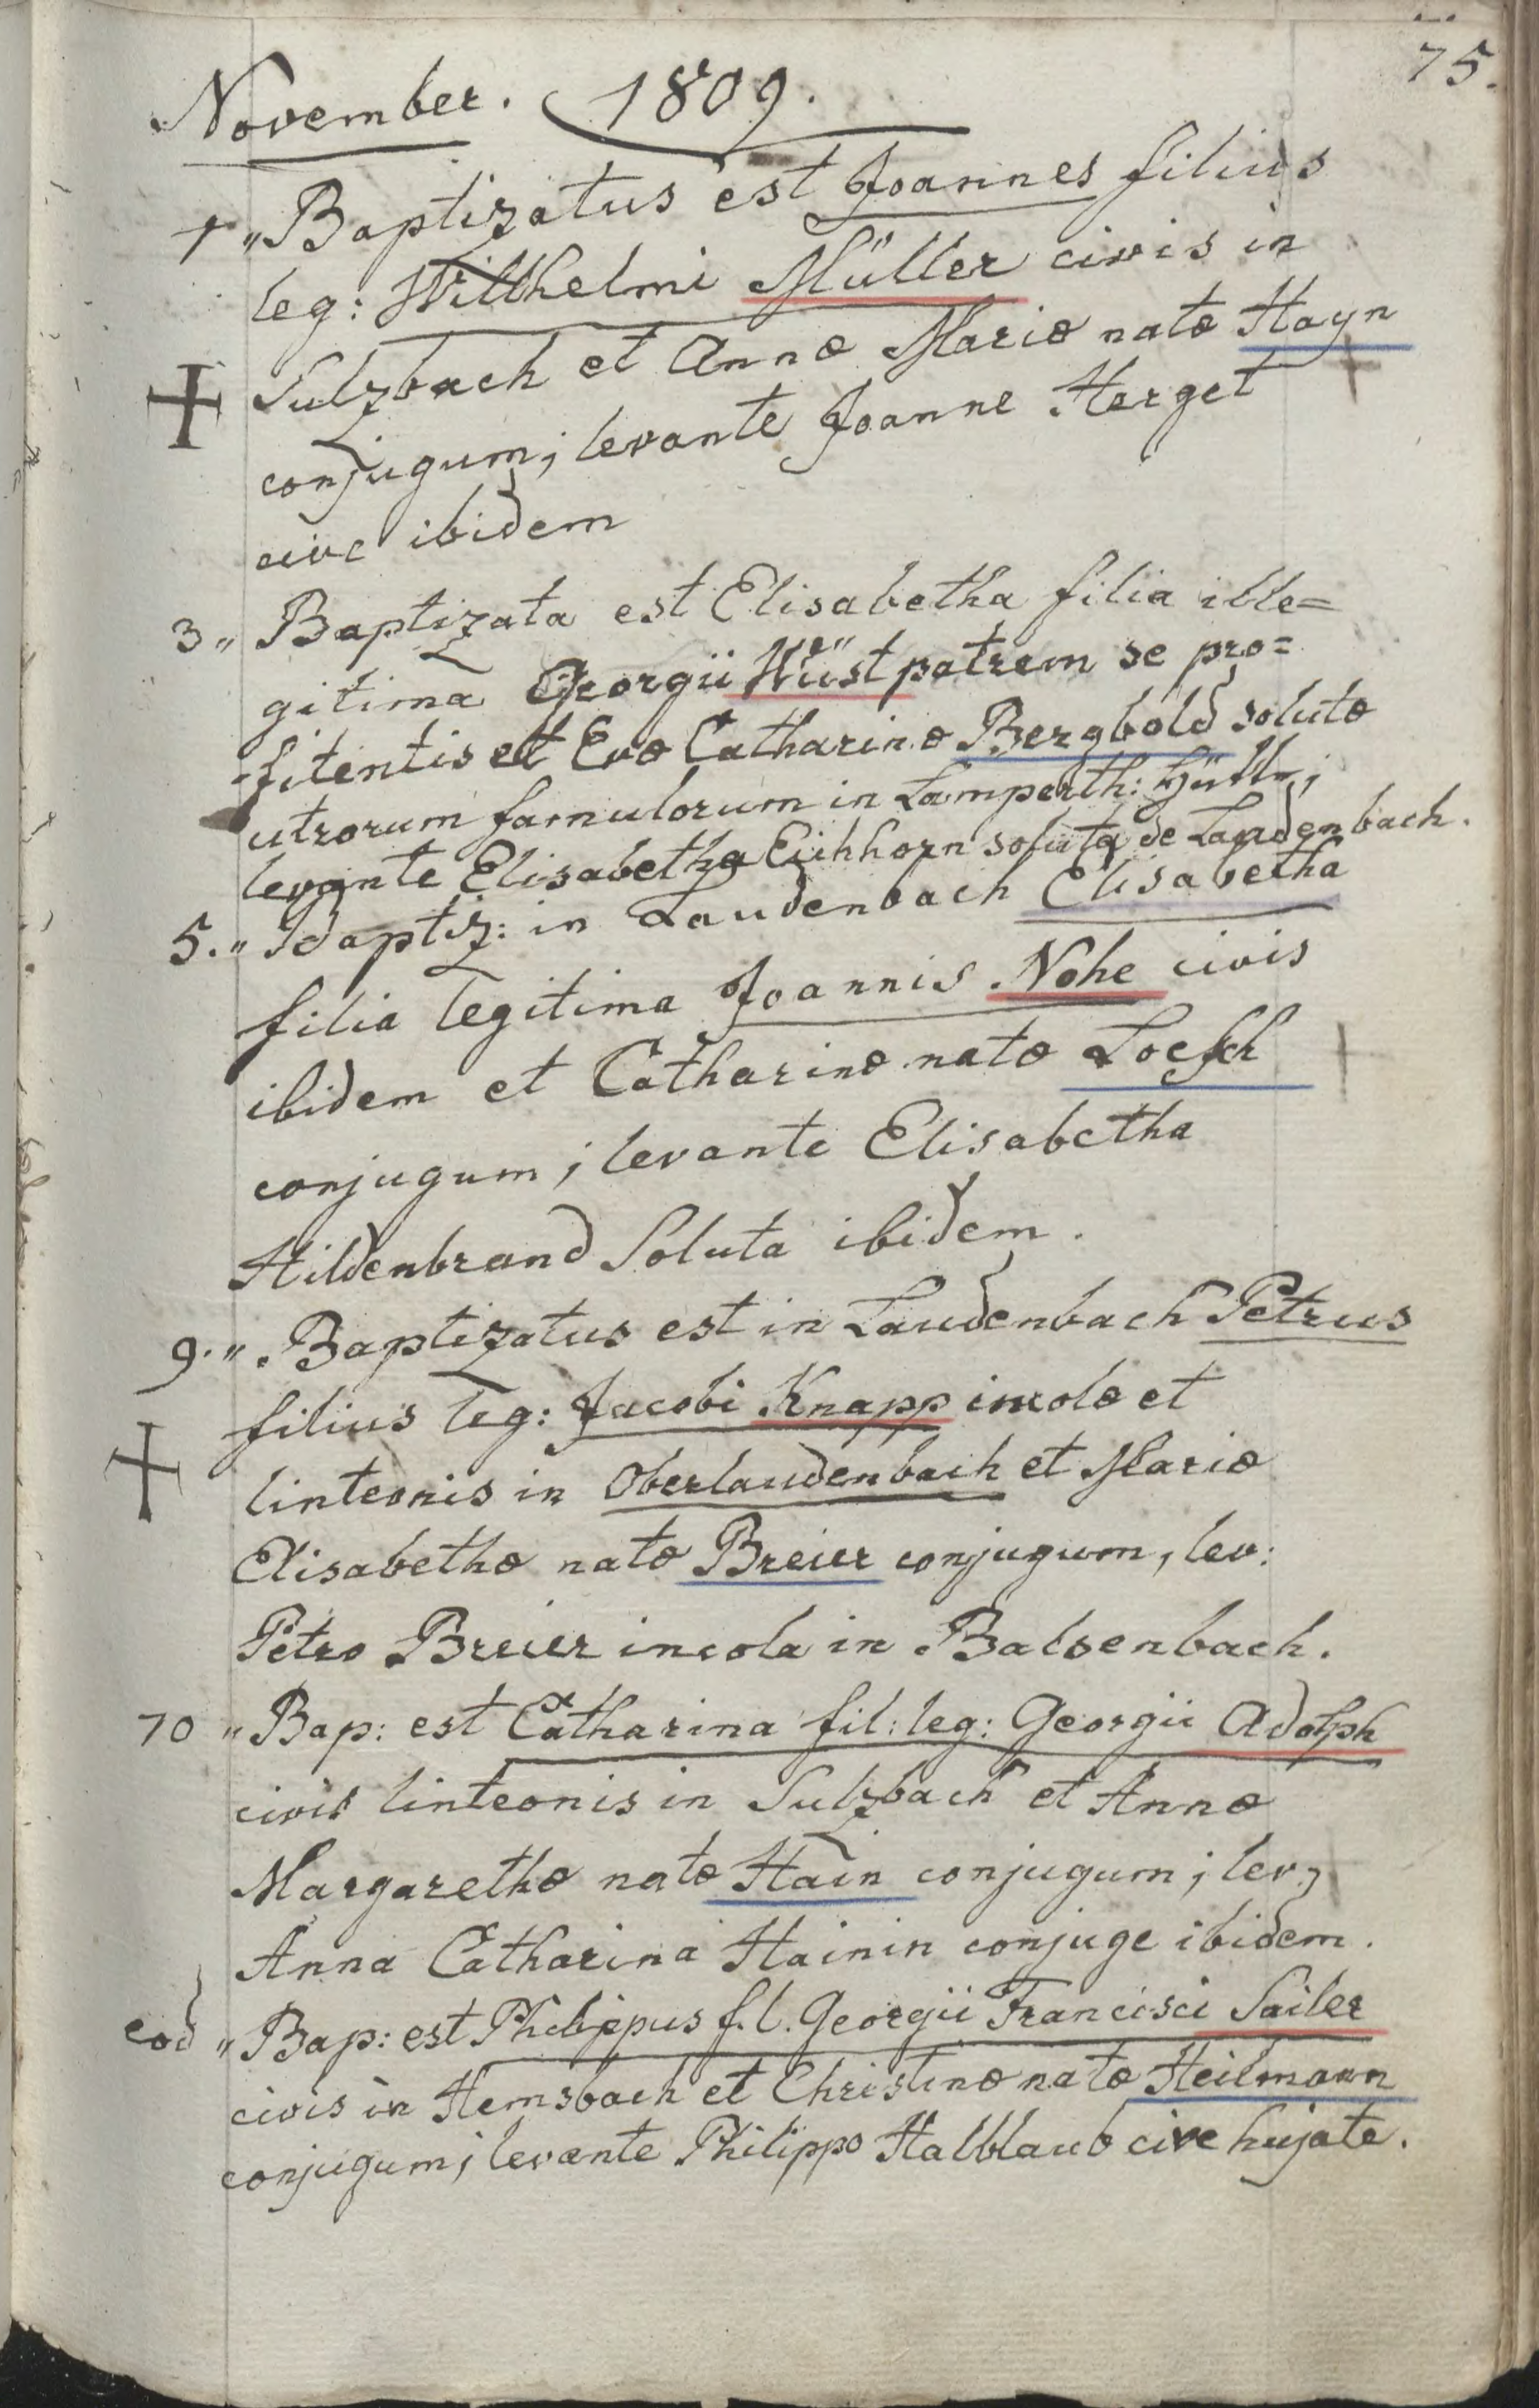 75.
November. 1809.
1 „ Baptizatus est Joannes filius
leg: Wilhelmi Müller civis in
Sulzbach et Annæ Mariæ natæ Hayn
conjugum; levante Joanne Herget
cive ibidem
3 „ Baptizata est Elisabetha filia ille=
gitima Georgii Wüst patrem se pro=
fitentis et Evæ Catharinæ Bergbold solutæ
utrorum famulorum in Lamperth: Hütt;
levante Elisabetha Eichhorn soluta de Laudenbach.
5. „ Baptiz: in Laudenbach Elisabetha
filia legitima Joannis Nohe civis
ibidem et Catharinæ natæ Loesch
conjugum; levante Elisabetha
Hildenbrand Soluta ibidem.
9. „ Baptizatus est in Laudenbach Petrus
filius leg: Jacobi Knapp incolæ et
linteonis in Oberlaudenbach et Mariæ
Elisabethæ natæ Breier conjugum, lev:
Petro Breier incola in Balsenbach.
10 „ Bap: est Catharina fil: leg: Georgii Adolph
civis linteonis in Sulzbach et Annæ
Margarethæ natæ Hain conjugum; lev:
Anna Catharina Hainin conjuge ibidem.
eod „ Bap: est Philippus f. l. Georgii Francisci Sailer
civis in Hemsbach et Christinæ natæ Heilmann
conjugum; levante Philippo Halblaub cive hujate.